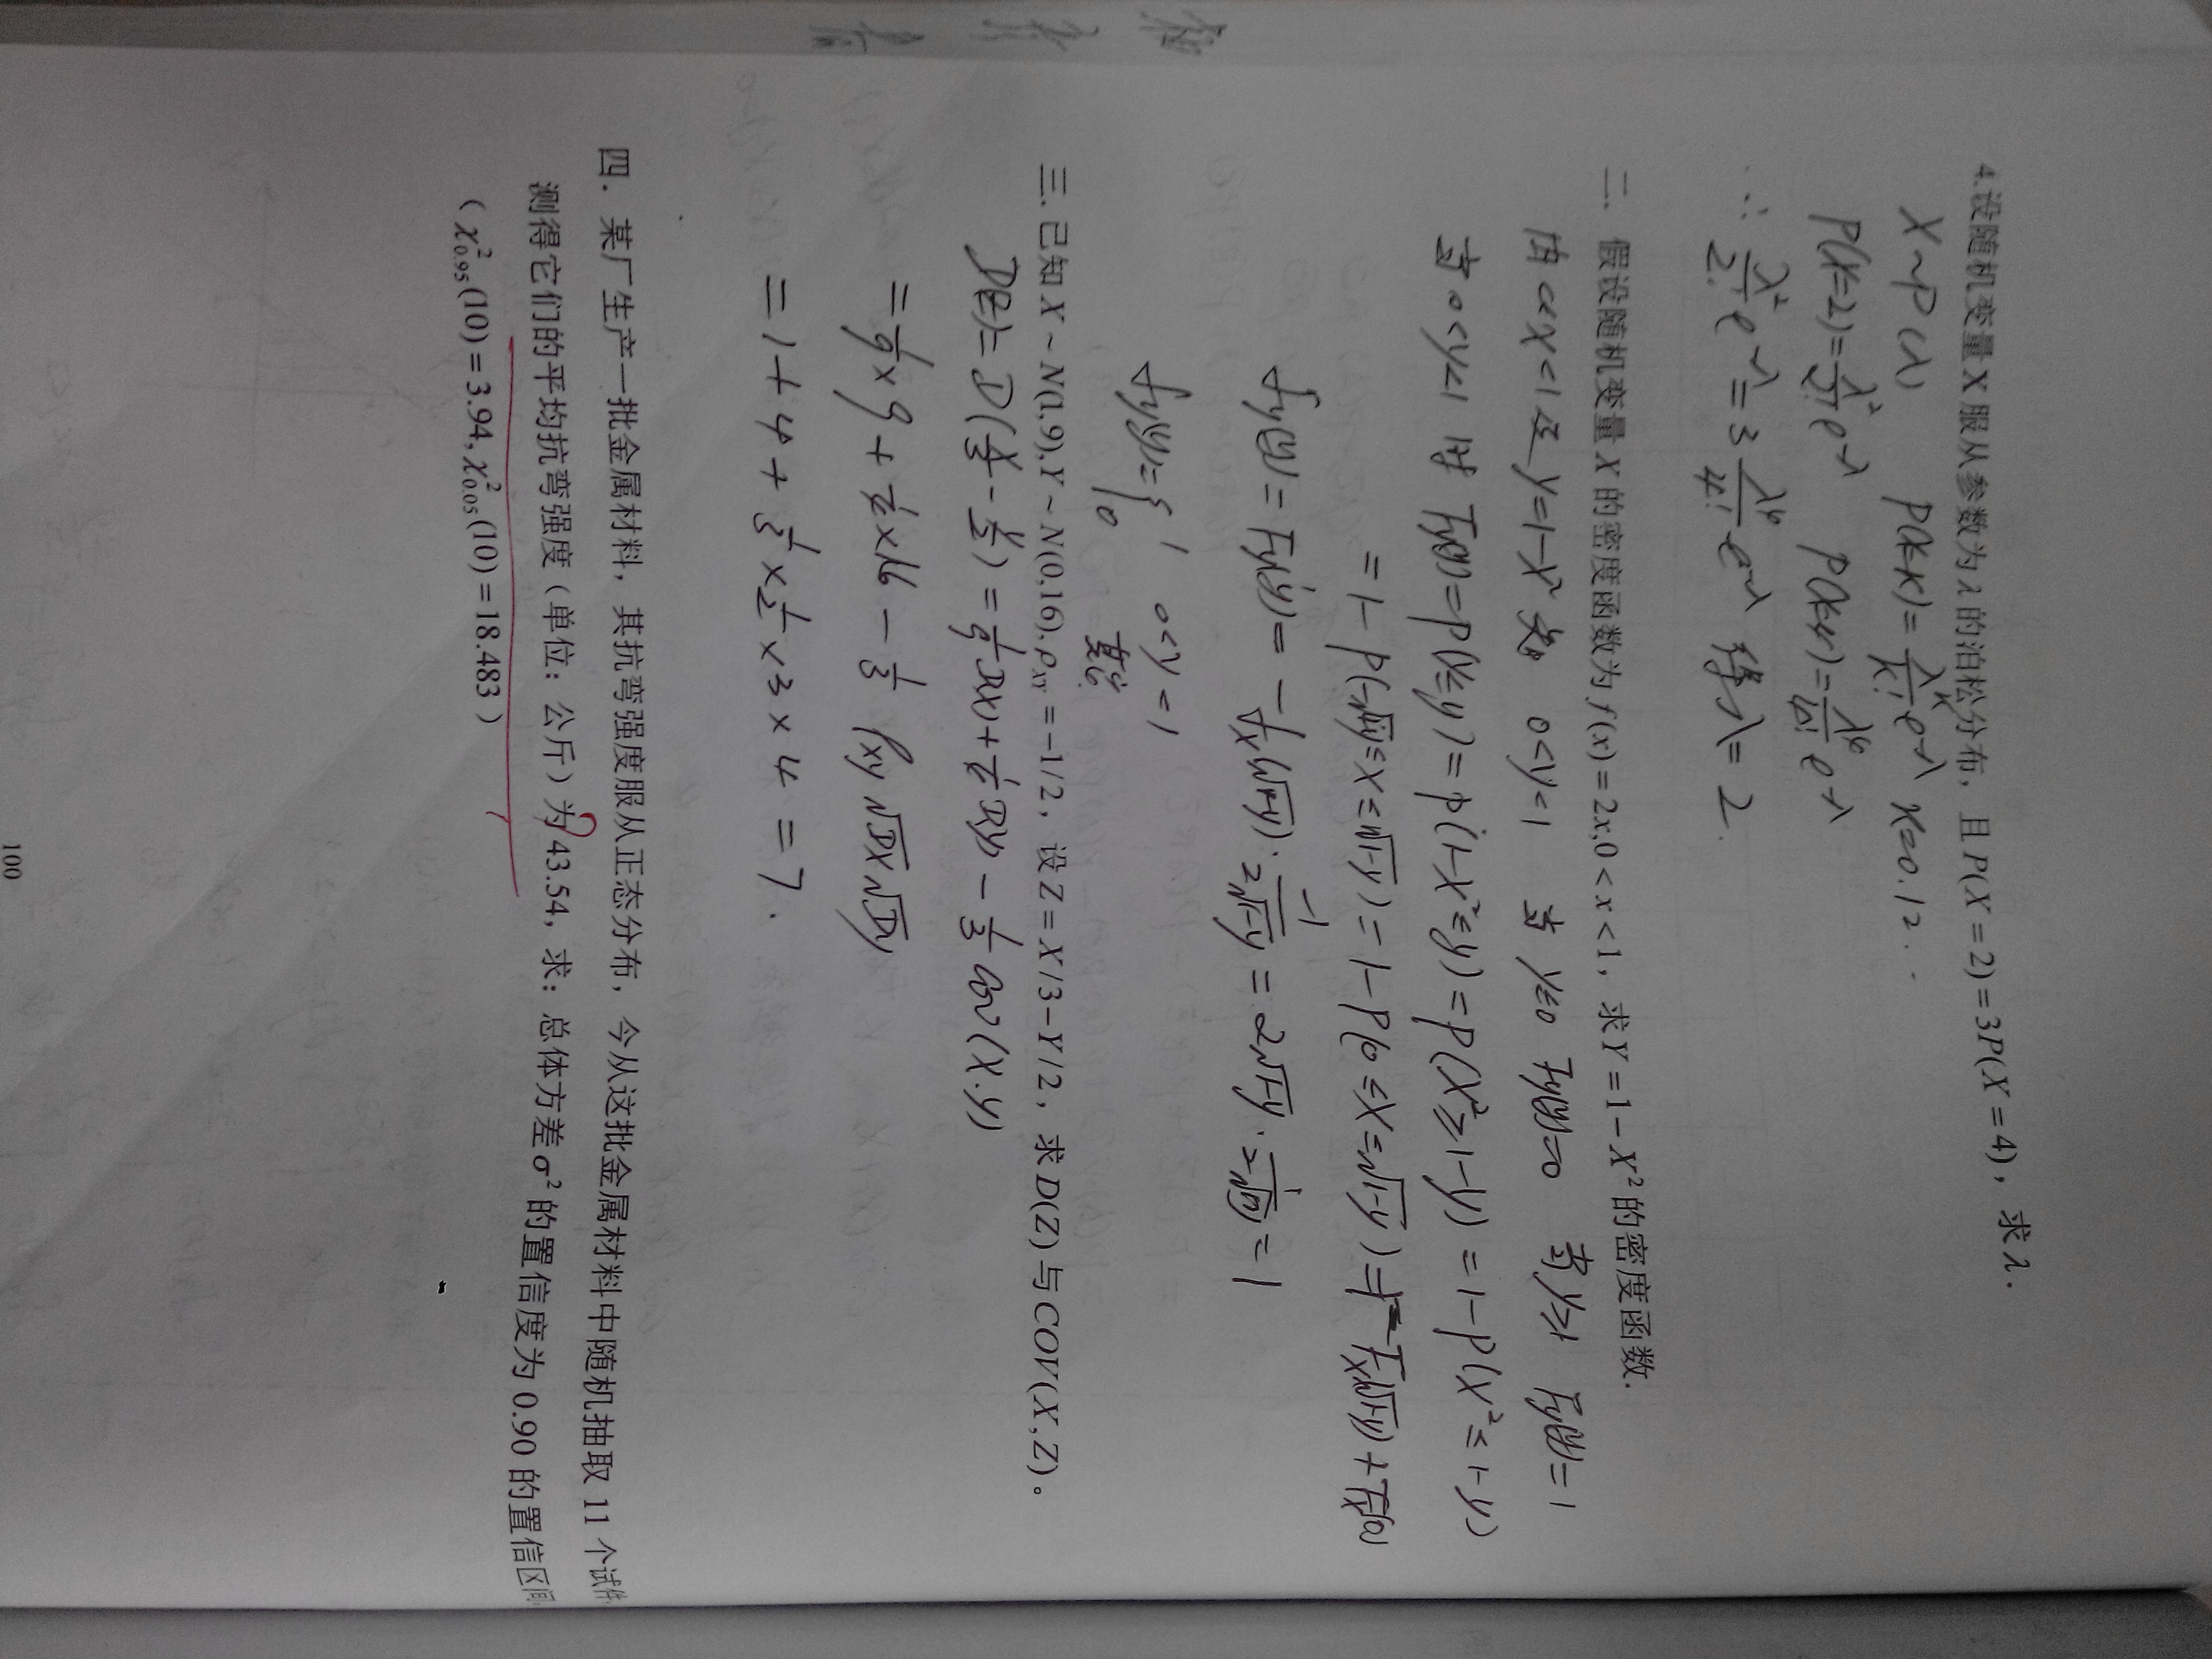 4.设随机变量 X 服从参数为 λ 的泊松分布，且 P(X = 2) = 3P(X = 4)，求 λ.
X~P(λ) P(X=K)=λ^K/K! e^-λ K=0.1.2...
P(X=2)=λ²/2! e^-λ P(X=4)=λ⁴/4! e^-λ
∴ λ²/2! e^-λ = 3 λ⁴/4! e^-λ 得λ=2.
二. 假设随机变量 X 的密度函数为 f(x) = 2x,0 < x < 1，求 Y = 1 − X² 的密度函数.
由 0<X<1 及 Y=1-X² 知 0<Y<1 当 y≤0 Fy(y)=0 当y≥1 Fy(y)=1
当 0<y<1 时 Fy(y)=P(Y≤y)=P(1-X²≤y)=P(X²≥1-y)=1-P(X²≤1-y)
=1-P(-√1-y≤X≤√1-y)=1-P(0≤X≤√1-y)=1-Fx(√1-y)+Fx(0)
fy(y)=Fy'(y)=-fx(√1-y)·-1/2√1-y=2√1-y·1/2√1-y=1
fy(y)={1 0<y<1
0 其它
三.已知 X ~ N(1,9),Y ~ N(0,16),ρ_XY = −1/2，设 Z = X/3 − Y/2，求 D(Z) 与 COV(X,Z)。
D(Z)=D(X/3-Y/2)=1/9DX+1/4Dy-1/3cov(X.y)
=1/9×9+1/4×16-1/3ρxy√DX√Dy
=1+4+1/3×1/2×3×4=7.
四. 某厂生产一批金属材料，其抗弯强度服从正态分布，今从这批金属材料中随机抽取 11 个试件
测得它们的平均抗弯强度（单位：公斤）为 43.54，求：总体方差 σ² 的置信度为 0.90 的置信区间
（χ²_0.95(10) = 3.94, χ²_0.05(10) = 18.483）
100